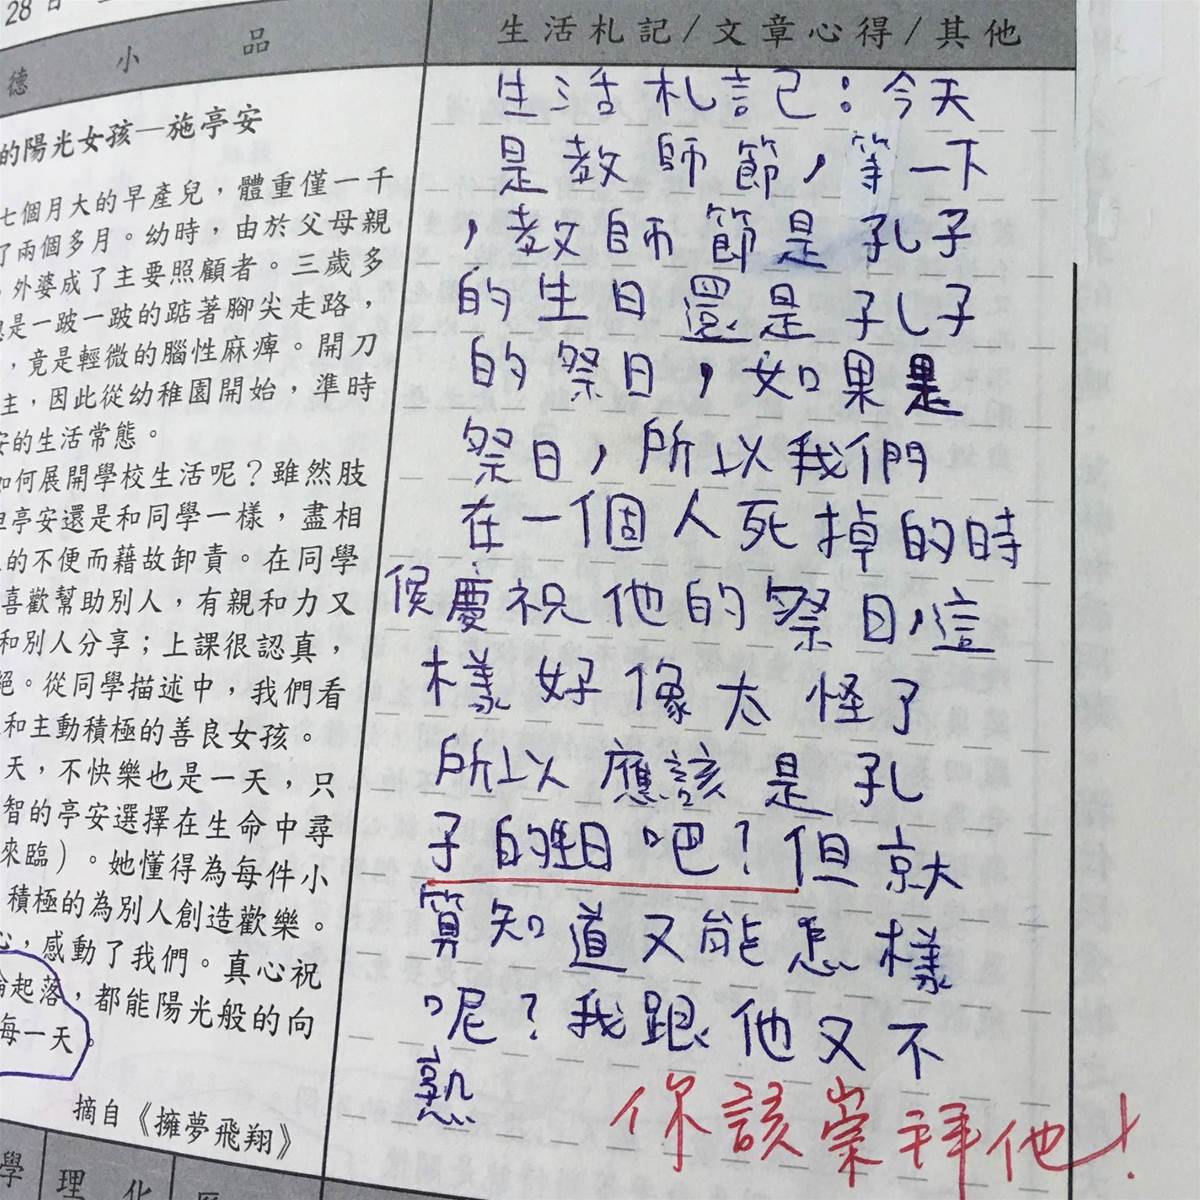 28日
德小品
的陽光女孩—施亭安
七個月大的早產兒，體重僅一千
了兩個多月。幼時，由於父母親
外婆成了主要照顧者。三歲多
是一跛一跛的踮著腳尖走路，
，竟是輕微的腦性麻痺。開刀
主，因此從幼稚園開始，準時
安的生活常態。
如何展開學校生活呢？雖然肢
但亭安還是和同學一樣，盡相
的不便而藉故卸責。在同學
喜歡幫助別人，有親和力又
和別人分享；上課很認真，
絕。從同學描述中，我們看
和主動積極的善良女孩。
天，不快樂也是一天，只
智的亭安選擇在生命中尋
來臨）。她懂得為每件小
積極的為別人創造歡樂。
心，感動了我們。真心祝
起落，都能陽光般的向
每一天。
摘自《擁夢飛翔》
學 理化
生活札記/文章心得/其他
生活札記：今天
是教師節，等一下
，教師節是孔子
的生日還是孔子
的祭日，如果是
祭日，所以我們
在一個人死掉的時
候慶祝他的祭日，這
樣好像太怪了
所以應該是孔
子的生日吧？但就
算知道又能怎樣
呢？我跟他又不
熟
你該崇拜他！